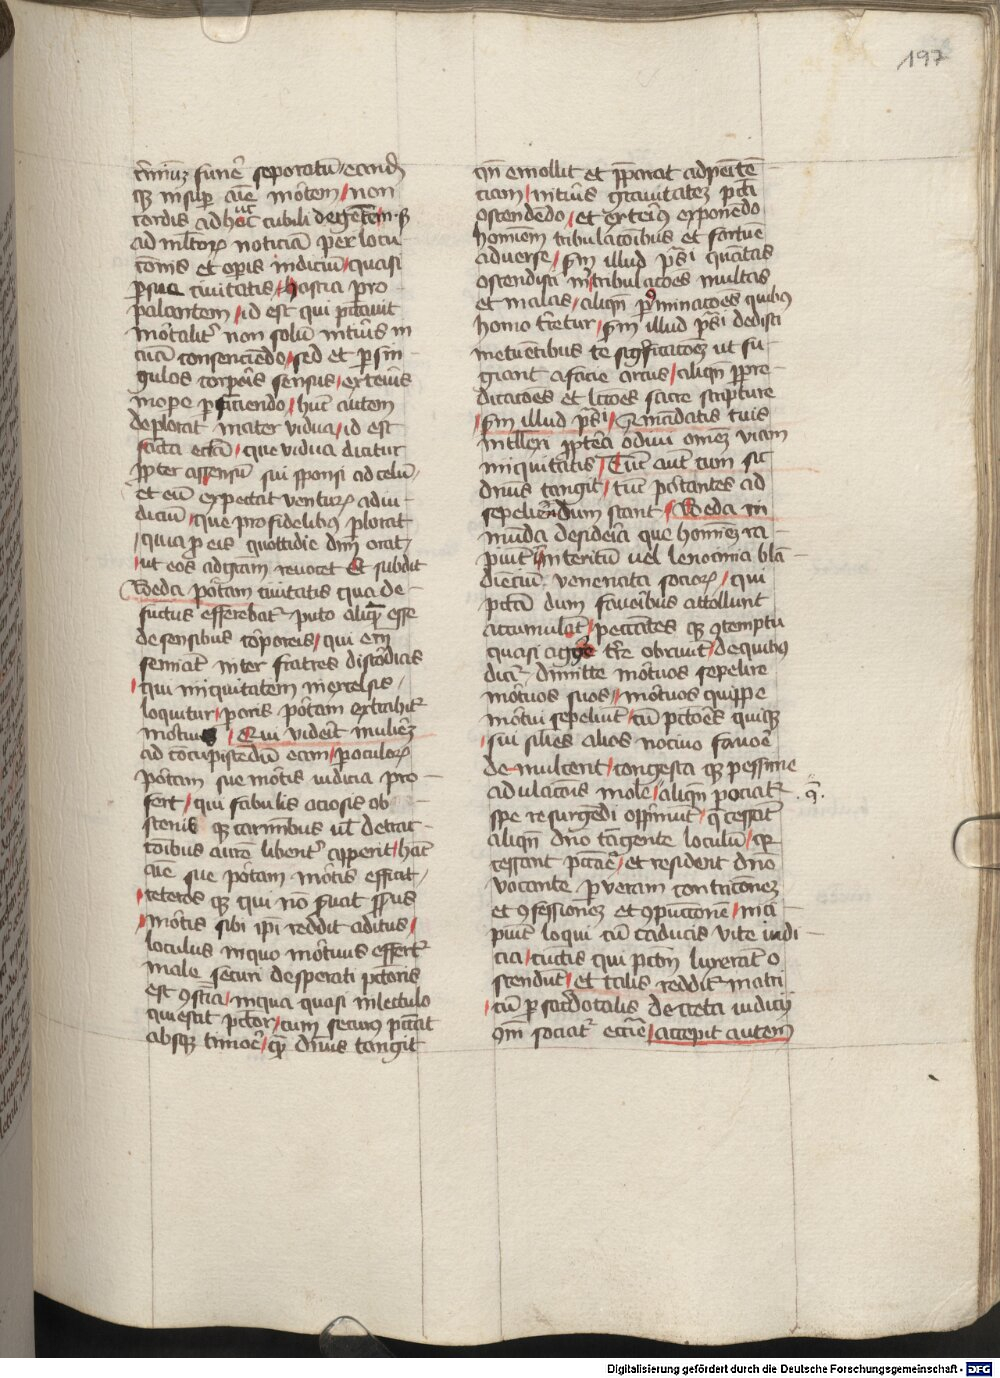 197
criminũ funere seporatũ eandẽ
qꝫ insuper aĩe mortem / non
cordis ad hoc ut cubili degentem · sꝫ
ad mĩtorꝫ noticiã per locu
cõnis et operis indiciũ / quasi
ꝑ sue ciuitatis / hostia pro
palantem / id est qui pctauit
mõtalit' non solũ interius in
tuã consenciendo / sed et ꝑ sin
gulos corporis sensus / exterius
inope ꝑficiendo / hũc autem
deplorat mater vidua / id est
sctã ectã / que vidua dicitur
ꝓpter assensũ sui sponsi ad celũ /
et eũ expectat venturꝫ ad iu
diciũ / que pro fidelibus plorat
/ quia ꝓ eis quottidie dñm orat /
/ ut eos ad grãm reuocet Et subdit
Beda portam ciuitatis qua de
functus efferebat' puto aliquẽ esse
de sensibus corporeis / qui eñ
seminat inter fratres discordias
/ qui iniquitatem in excelsis /
loquitur / p oris portam extrahit'
mortuus / Qui viderit mulierẽ
ad concupiscendũ eam / ꝑ oculorꝫ
portam sue mortis iudicia pro
fert / qui fabulis ociosis ob
scenis qꝫ carminibus ul' detrac
cõibus aurẽ libent' apperit / hãc
aĩe sue portam mortis efficit /
/ ceteros qꝫ qui nõ suat sensus
/ mortis sibi ipsi reddit aditus /
loculus in quo mortuus effert'
male securi desperati pctoris
est conscĩa / in qua quasi in lectulo
quiescit pctor / cum securus pctat
absqꝫ timore / quẽ dñus tangit
qñ emollit et ꝓparat ad peniten
ciam / interius grauitatẽ pcti
ostendendo / et exterius exponendo
hominem tribulacõibus et fortune
aduerse / sm illud psi quantas
ostendisti mꝫ tribulacões multas
et malas / aliqñ ꝑ cominacões quibus
homo terretur / sm illud psi dedisti
metuentibus te significatoẽ ut fu
giant a facie arcus / aliqñ ꝑ pre
dicatões et lcões sacre scripture
/ sm illud psi / A mandatis tuis
intellexi ꝓpterea odiui omẽ viam
iniquitatis / Tũc aũt cum sic
dñus tangit / tũc portantes ad
sepeliendum stant / Beda in
munda desideria que hominẽ ra
piũt in interitũ uel lenocinia blã
dienciũ venenata sociorꝫ / qui
pctã dum fauoribus attollunt
accumulãt / peccantes qꝫ contemptu
quasi aggere terre obruũt / de quibus
dicit' dimitte mortuos sepelire
mortuos suos / mortuos quippe
mortui sepeliũt / cũ pctores quiqꝫ
/ sui siles alios nociuo fauore
de mulcent / congesta qꝫ pessime
adulacõis mole / aliqñ peccat' . q̃ .
spe resurgendi opprimũt / q̃ cessãt
aliqñ dño tãgente loculũ / qꝫ
cessant pctã / et resident dño
vocante ꝑ veram contricõnẽ
et confessionẽ et compunctionẽ / inci
piũt loqui cũ caducis vite indi
cia / cunctis qui pctm luxerãt o
stendũt / et talis reddit' matri
/ cũ ꝑ sacerdotalis decreta iudicij
comuni sociat' eccĩe / accepit autem
Digitalisierung gefördert durch die Deutsche Forschungsgemeinschaft - DFG